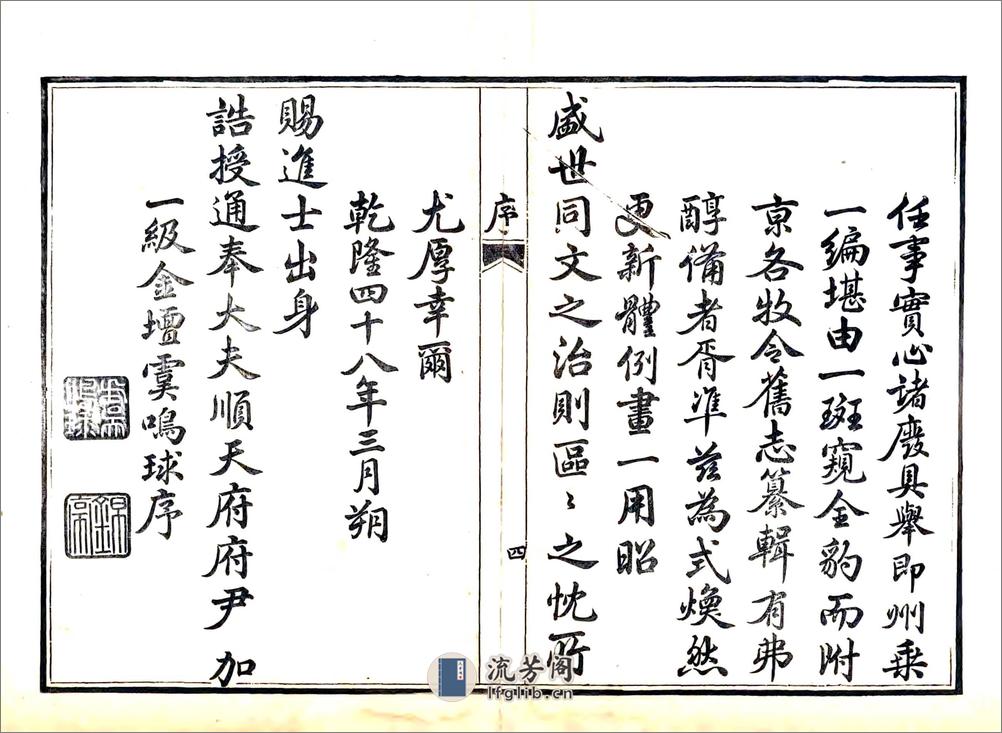 任事實心諸廢具舉即州乗
一編堪由一斑窺全豹而附
京各牧令舊志纂輯有弗
醇備者胥準茲為式煥然
更新體例畫一用昭
盛世同文之治則區〻之忱所
序
四
尤厚幸爾
乾隆四十八年三月朔
賜進士出身
誥授通奉大夫順天府府尹加
一級金壇虞鳴球序
流芳阁
lfglib.cn